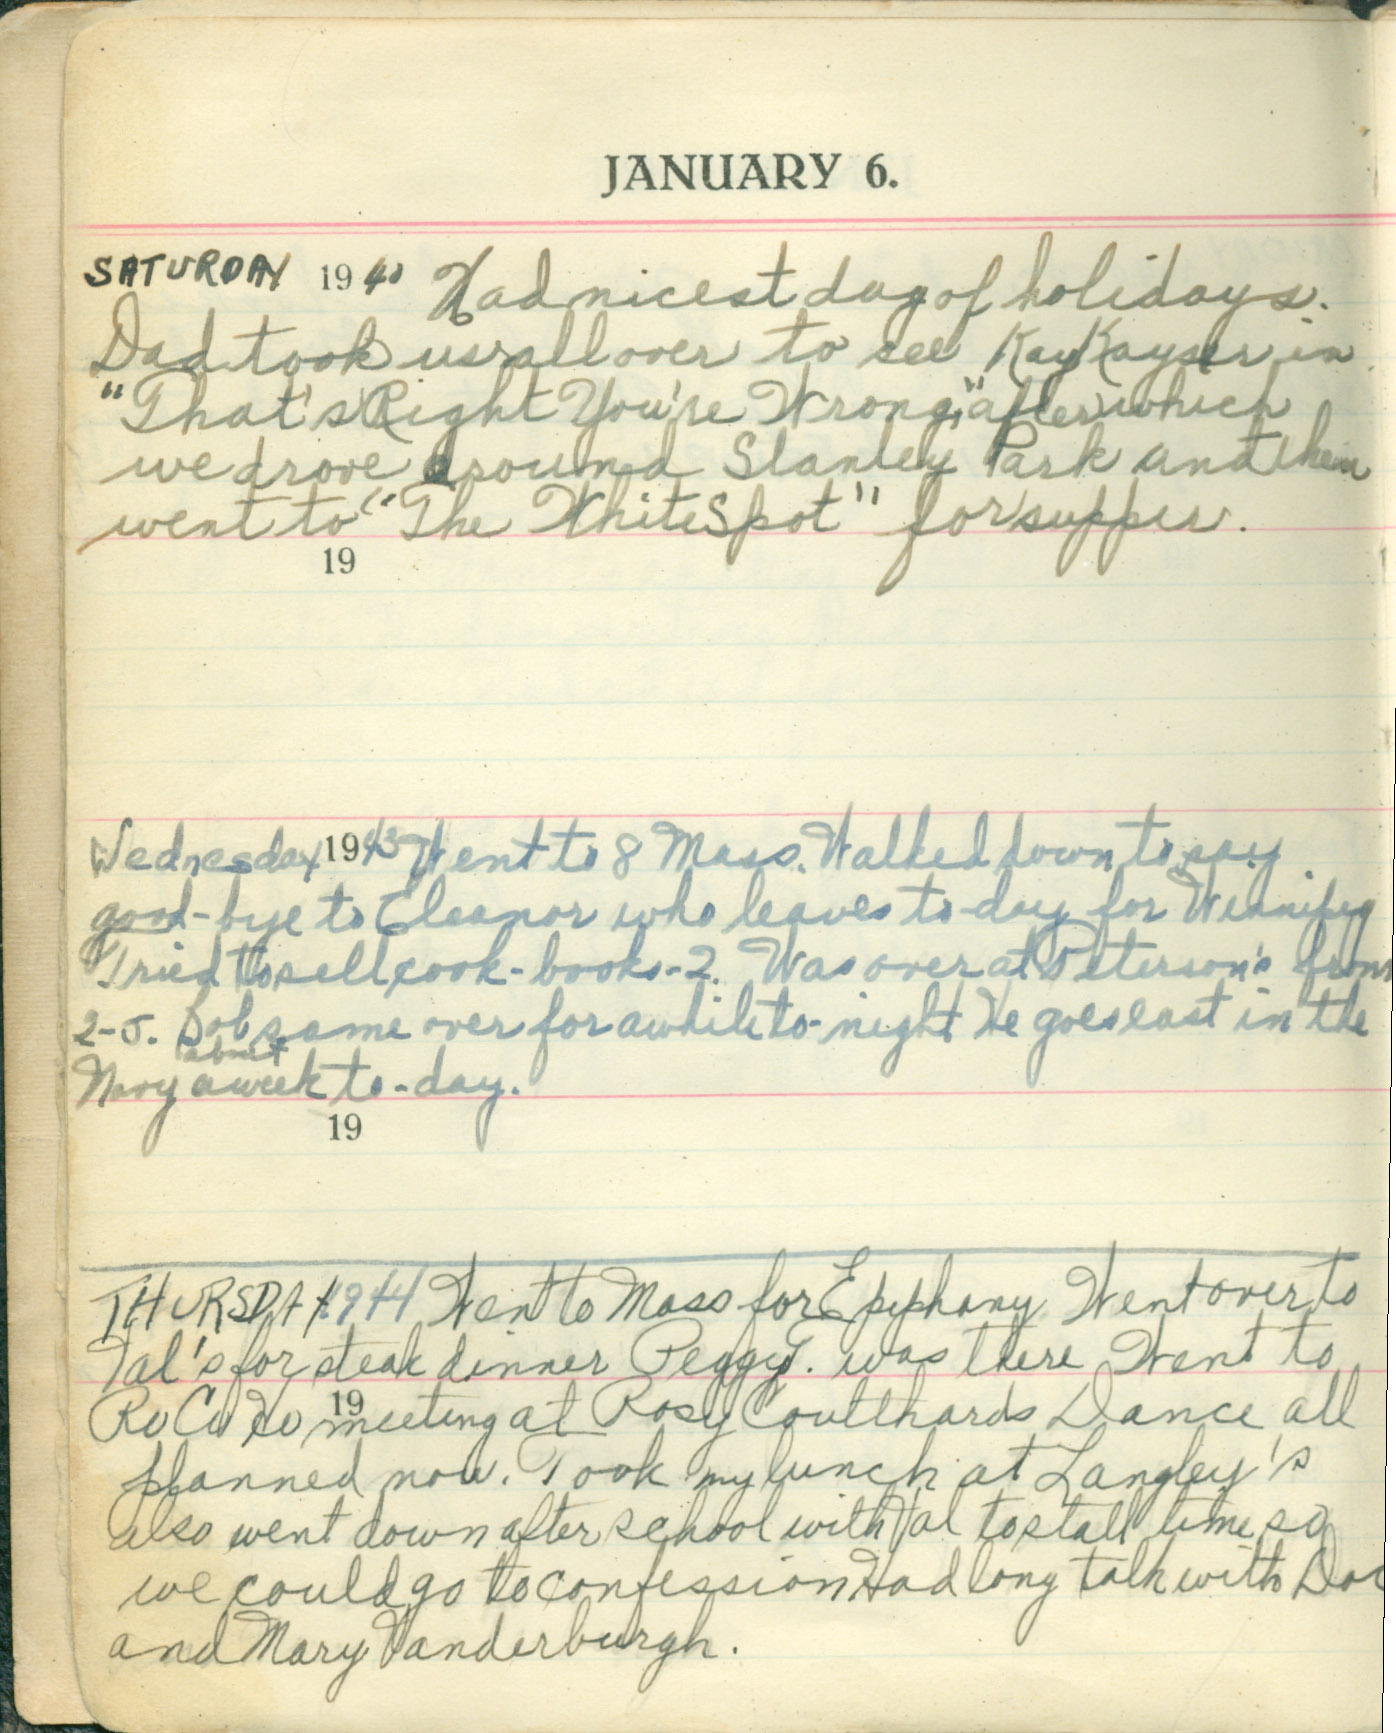 JANUARY 6.
SATURDAY 1940 Had nicest day of holidays.
Dad took us all over to see Kay Kayser in
"That's Right You're Wrong," after which
we drove around Stanley Park and then
went to "The White Spot" for supper.
19
Wednesday 1943 Went to 8 Mass. Walked down to say
good-bye to Eleanor who leaves to-day for Winnipeg
Tried to sell cook-books-2. Was over at Peterson's from
2-5. Bob came over for awhile to-night He goes east in the
about
Navy a week to-day.
19
THURSDAY 1944 Went to Mass for Epiphany Went over to
Val's for steak dinner Peggy T. was there Went to
19
meeting at Rosy Coulthards Dance all
planned now. Took my lunch at Langley's
also went down after school with Val to stall time so
we could go to confession Had long talk with
and Mary Vanderburgh.